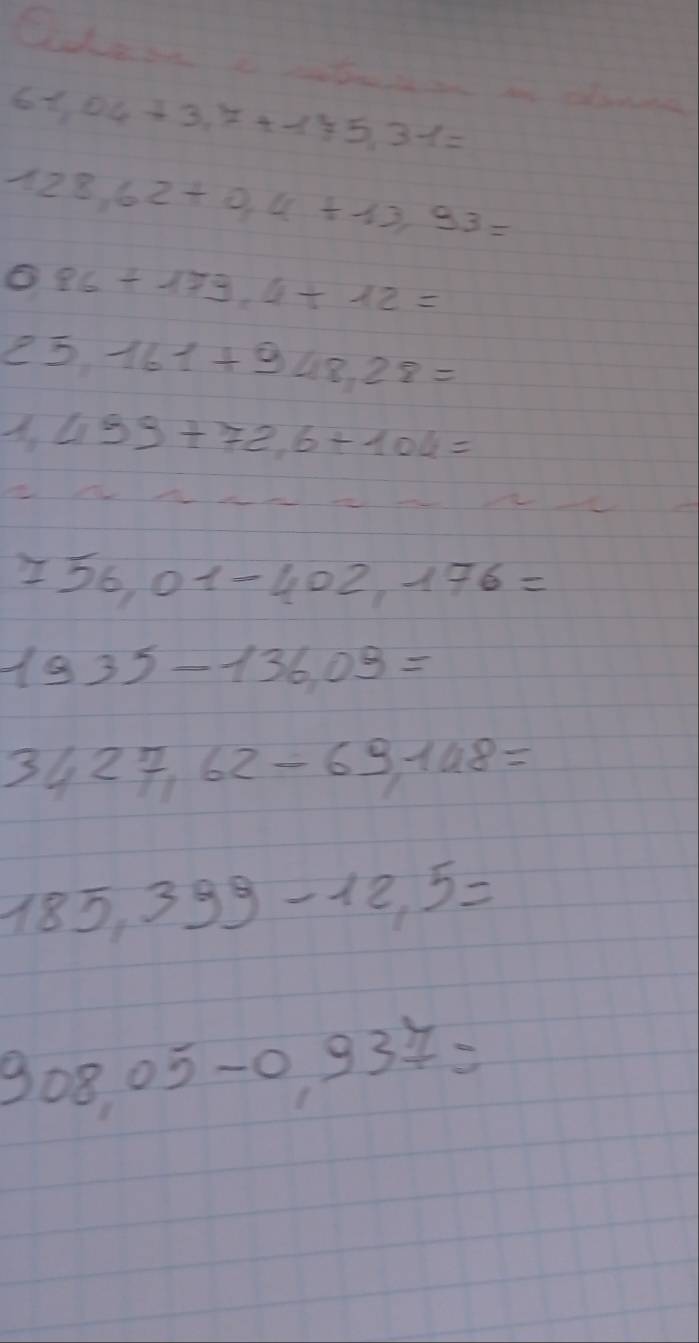 61,04+3,7+175,31=
128,62+0,4+13,93=
0,86+179,4+12=
25,161+948,28=
1,499+72,6+104=
756,01-402,176=
1935-136,09=
3427,62-69,148=
185,399-12,5=
908,05-0,937=